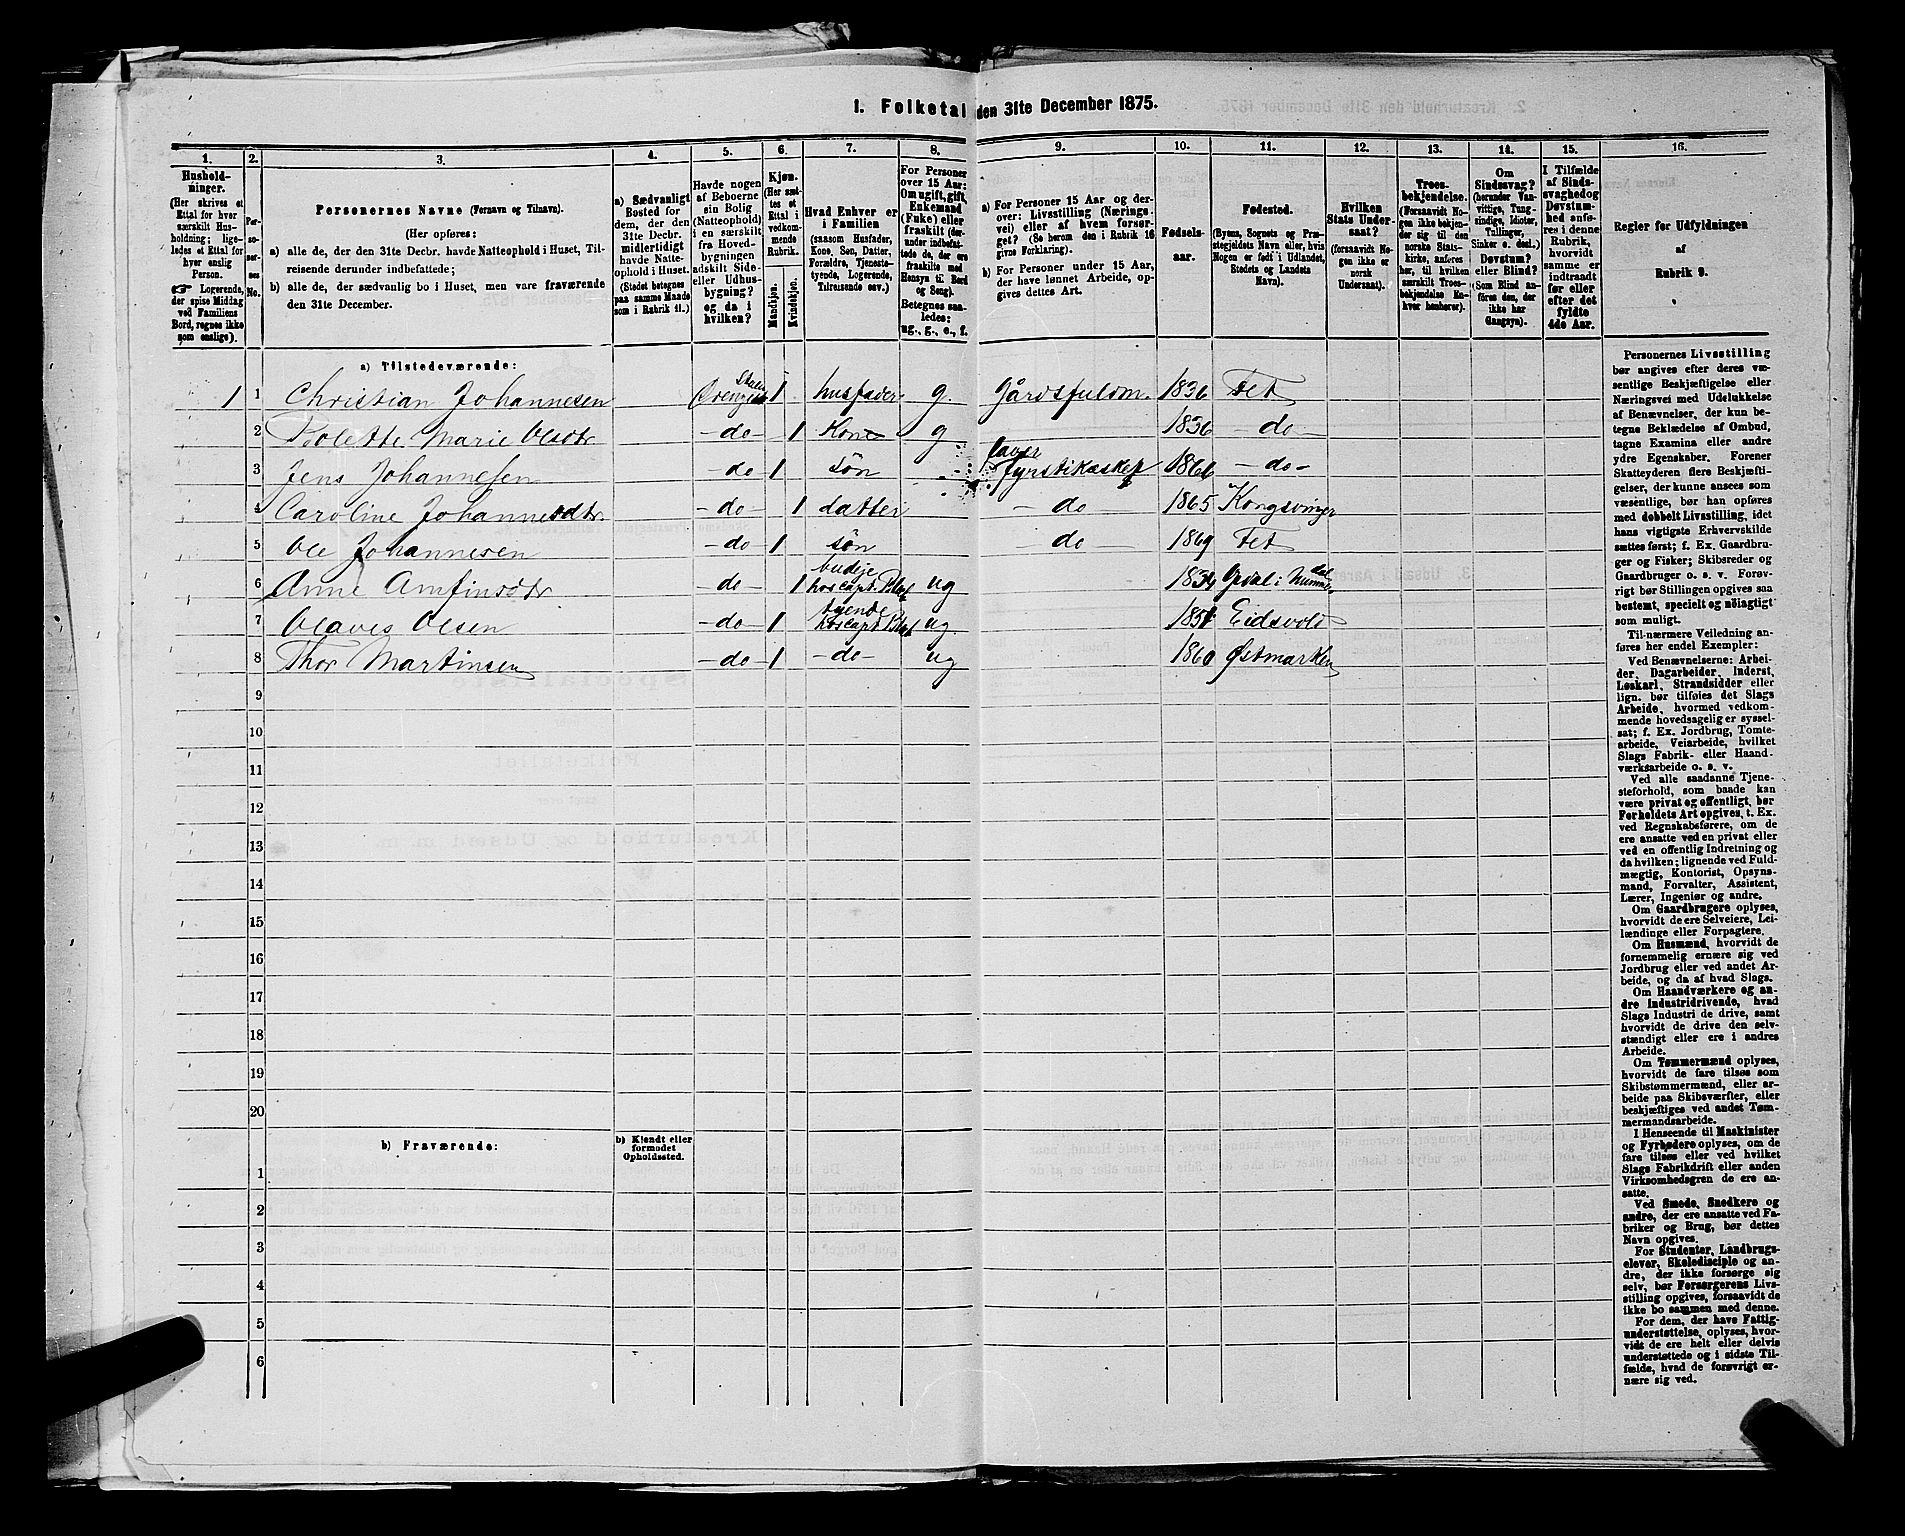 1. Folketal den 31te December 1875.
1. 2. 3. 4. 5. 6. 7. 8. 9. 10. 11. 12. 13. 14. 15. 16.
Hushold-
ninger.
(Her skrives et
Ettal for hver
særskilt Hus-
holdning; lige-
ledes et Ettal for
hver enslig
Person.
☞ Logerende,
der spise Middag
ved Familiens
Bord, regnes ikke
som enslige).
Per-
so-
ner-
nes
No.
Personernes Navne (Fornavn og Tilnavn).
(Her opføres:
a) alle de, der den 31te Decbr. havde Natteophold i Huset, Til-
reisende derunder indbefattede;
b) alle de, der sædvanlig bo i Huset, men vare fraværende
den 31te December.
a) Sædvanligt
Bosted for
dem, der den
31te Decbr.
midlertidigt
havde Natte-
ophold i Huset.
(Stedet betegnes
paa samme Maade
som i Rubrik 11.)
Havde nogen
af Beboerne
sin Bolig
(Natteophold)
i en særskilt
fra Hoved-
bygningen
adskilt Side-
eller Udhus-
bygning?
og da i
hvilken?
Kjøn.
(Her sæt-
tes et
Ettal i
vedkom-
mende
Rubrik.
Mandkjøn.
Kvindekjøn.
Hvad Enhver er
i Familien
(saasom Husfader,
Kone, Søn, Datter,
Forældre, Tjeneste-
tyende, Logerende,
Tilreisende osv.)
For Personer
over 15 Aar:
Om ugift, gift,
Enkemand
(Enke) eller
fraskilt (der-
under indbefat-
tede de, der ere
fraskilte med
Hensyn til Bord
og Seng).
Betegnes saa-
ledes:
ug., g., e., f.
a) For Personer 15 Aar og der-
over: Livsstilling (Nærings-
vei) eller af hvem forsør-
get? (Se herom den i Rubrik 16
givne Forklaring).
b) For Personer under 15 Aar,
der have lønnet Arbeide, op-
gives dettes Art.
Fødsels-
aar.
Fødested.
(Byens, Sognets og Præ-
stegjeldets Navn eller, hvis
Nogen er født i Udlandet,
Stedets og Landets
Navn).
Hvilken
Stats Under-
saat?
(forsaavidt No-
gen ikke er
norsk
Undersaat).
Troes-
bekjendelse.
(Forsaavidt No-
gen ikke bekjen-
der sig til den
norske Stats-
kirke, anføres
her, til hvilken
særskilt Troes-
bekjendelse En-
hver henhører).
Om
Sindssvag?
(herunder Van-
vittige, Tung-
sindige, Idioter,
Tullinger,
Sinker o. desl.).
Døvstum?
eller Blind?
(Som Blind an-
føres den, der
ikke har
Gangsyn).
I Tilfælde
af Sinds-
svaghed og
Døvstum-
hed anfø-
res i denne
Rubrik,
hvorvidt
samme er
indtraadt
før eller
efter det
fyldte
4de Aar.
Regler for Udfyldningen
af
Rubrik 9.
a) Tilstedeværende:
1 1 Christian Johannesen 1 husfader g. Gårdsfuldm. 1836 Fet
2 Bolette Marie Olsdtr – do – 1 Kone g 1836 – do –
3 Jens Johannesen – do – 1 søn laver Fyrstikæsker – do –
4 Caroline Johannesdtr. – do – 1 datter – do 1865 Kongsvinger
5 Ole Johannesen – do – 1 søn – do 1869 Fet
6 Anne Amfinsdtr – do – 1 budeje hos capt. ug i Nummedal
7 Olaves Olsen – do – 1 tyende hos capt. ug. Eidsvold
8 Thor Martinsen – do – 1 – do – ug 1860 Østmarken
9
10
11
12
13
14
15
16
17
18
19
20
b) Fraværende:
b) Kjendt eller
formodet
Opholdssted.
1
2
3
4
5
6
Personernes Livsstilling
bør angives efter deres væ-
sentlige Beskjæftigelse eller
Næringsvei med Udelukkelse
af Benævnelser, der kun be-
tegne Beklædelse af Ombud,
tagne Examina eller andre
ydre Egenskaber. Forener
Skatteyderen flere Beskjæfti-
gelser, der kunne ansees som
væsentlige, bør han opføres
med dobbelt Livsstilling, idet
hans vigtigste Erhvervskilde
sættes først; f. Ex. Gaardbru-
ger og Fisker; Skibsreder og
Gaardbruger o. s. v. Forøv-
rigt bør Stillingen opgives saa
bestemt, specielt og nöiagtigt
som muligt.
Til nærmere Veiledning an-
føres her endel Exempler:
Ved Benævnelserne: Arbei-
der, Dagarbeider, Inderst,
Løskarl, Strandsidder eller
lign. bør tilføies det Slags
Arbeide, hvormed vedkom-
mende hovedsagelig er syssel-
sat; f. Ex. Jordbrug, Tomte-
arbeide, Veiarbeide, hvilket
Slags Fabrik- eller Haand-
værksarbeide o. s. v.
Ved alle saadanne Tjene-
steforhold, som baade kan
være privat og offentligt, bør
Forholdets Art opgives, t. Ex.
ved Regnskabsførere, om de
ere ansatte ved en privat eller
ved en offentlig Indretning og
da hvilken; lignende ved Fuld-
mægtig, Kontorist, Opsyns-
mand, Forvalter, Assistent,
Lærer, Ingeniør og andre.
Om Gaardbrugere oplyses,
hvorvidt de ere Selveiere, Lei-
lændinge eller Forpagtere.
Om Husmænd, hvorvidt de
fornemmelig ernære sig ved
Jordbrug eller ved andet Ar-
beide, og da af hvad Slags.
Om Haandværkere og an-
dre Industridrivende, hvad
Slags Industri de drive, samt
hvorvidt de drive den selv-
stændigt eller ere i andres
Arbeide.
Om Tømmermænd oplyses,
hvorvidt de fare tilsøs som
Skibstømmermænd, eller ar-
beide paa Skibsværfter, eller
beskjæftiges ved andet Tøm-
mermandsarbeide.
I Henseende til Maskinister
og Fyrbødere oplyses, om de
fare tilsøs eller ved hvilket
Slags Fabrikdrift eller anden
Virksomhedsgren de ere an-
satte.
Ved Smede, Snedkere og
andre, der ere ansatte ved Fa-
briker og Brug, bør dettes
Navn opgives.
For Studenter, Landbrugs-
elever, Skoledisciple og an-
dre, der ikke forsørge sig
selv, bør Forsørgerens Livs-
stilling opgives, forsaavidt de
ikke bo sammen med denne.
For dem, der have Fattig-
understøttelse, oplyses, hvor-
vidt de ere helt eller delvis
understøttede og i sidste Til-
fælde, hvad de forøvrigt er-
nære sig ved.